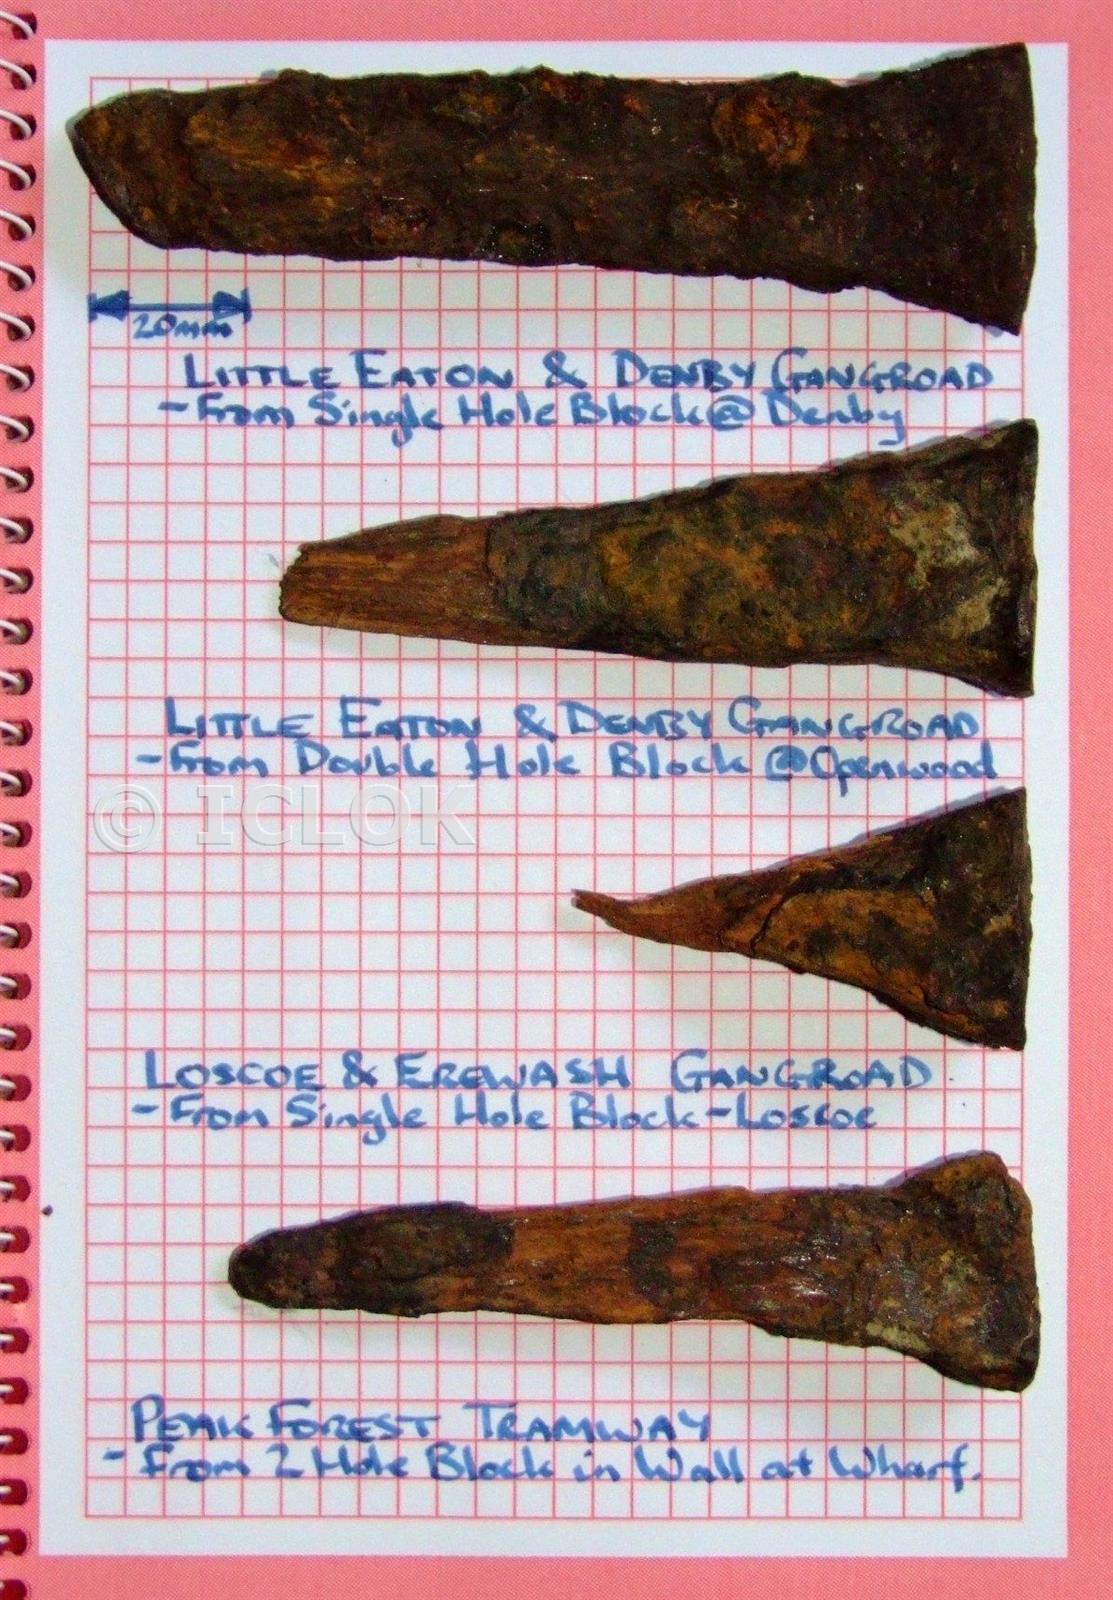 20mm
LITTLE EATON & DENBY GANGROAD
- From Single Hole Block @ Denby
LITTLE EATON & DENBY GANGROAD
- From Double Hole Block @ Openwood
© ICLOK
LOSCOE & EREWASH GANGROAD
- From Single Hole Block - Loscoe
PEAK FOREST TRAMWAY
- From 2 Hole Block in Wall at Wharf.